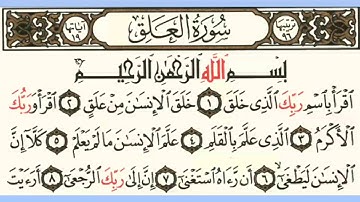 ترتيبها ٩٦ سُورَةُ العَلَق آياتها ١٩
بِسْمِ اللَّهِ الرَّحْمَٰنِ الرَّحِيمِ
اقْرَأْ بِاسْمِ رَبِّكَ الَّذِي خَلَقَ ١ خَلَقَ الْإِنسَانَ مِنْ عَلَقٍ ٢ اقْرَأْ وَرَبُّكَ
الْأَكْرَمُ ٣ الَّذِي عَلَّمَ بِالْقَلَمِ ٤ عَلَّمَ الْإِنسَانَ مَا لَمْ يَعْلَمْ ٥ كَلَّا إِنَّ
الْإِنسَانَ لَيَطْغَىٰ ٦ أَن رَّءَاهُ اسْتَغْنَىٰ ٧ إِنَّ إِلَىٰ رَبِّكَ الرُّجْعَىٰ ٨ أَرَءَيْتَ